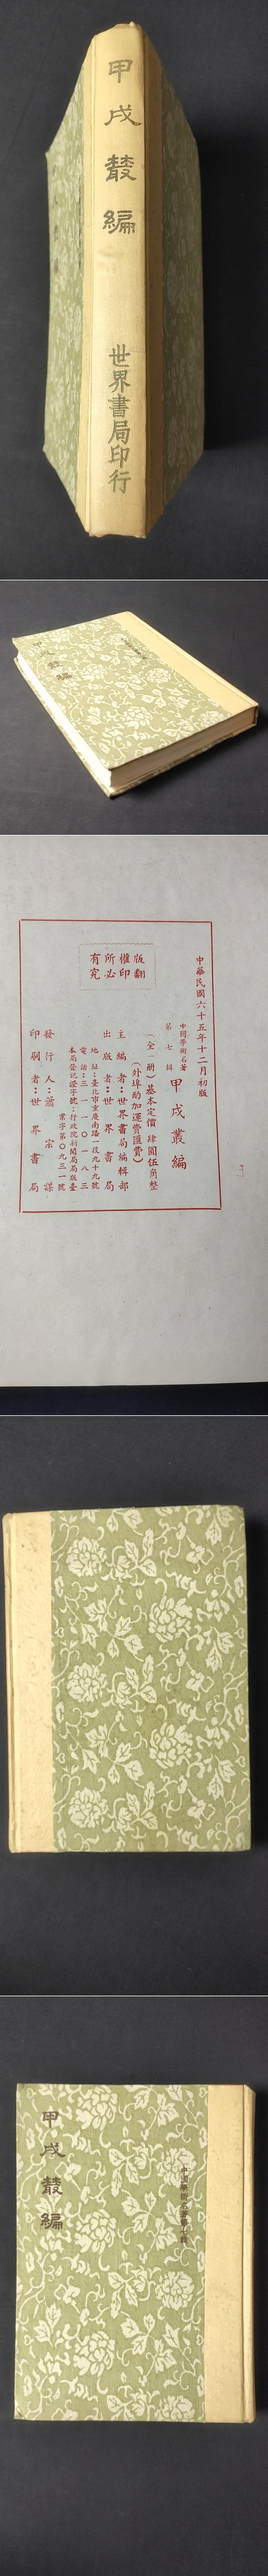 甲戌叢編
世界書局印行
甲戌叢編
中華民國六十五年十二月初版
中國學術名著
第七輯
甲戌叢編
(全一册)基本定價 肆圓伍角整
(外埠酌加運費匯費)
主編者:世界書局編輯部
出版者:世界書局
地址:臺北市重慶南路一段九十九號
電話:三一一〇一八三
本局登記證字號:行政院新聞局局版臺
業字第〇九三一號
發行人:蕭宗謀
印刷者:世界書局
版權所有
翻印必究
中國學術名著第七輯
甲戌叢編